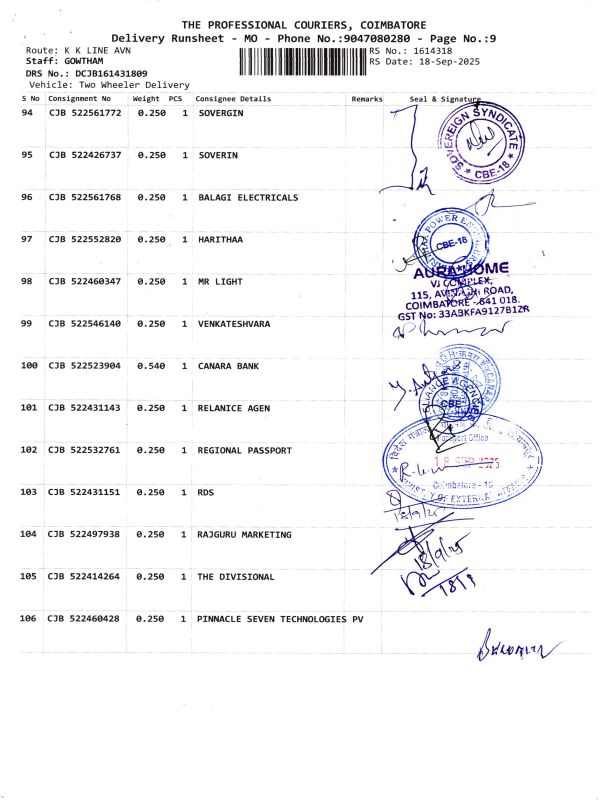 THE PROFESSIONAL COURIERS, COIMBATORE
Delivery Runsheet - MO - Phone No.:9047080280 - Page No.:9
Route: K K LINE AVN
RS No.: 1614318
Staff: GOWTHAM
RS Date: 18-Sep-2025
DRS No.: DCJB161431809
Vehicle: Two Wheeler Delivery
S No Consignment No Weight PCS Consignee Details Remarks Seal & Signature
94 CJB 522561772 0.250 1 SOVERGIN
SOVEREIGN SYNDICATE
★ CBE-18 ★
95 CJB 522426737 0.250 1 SOVERIN
96 CJB 522561768 0.250 1 BALAGI ELECTRICALS
97 CJB 522552820 0.250 1 HARITHAA
CBE-18
98 CJB 522460347 0.250 1 MR LIGHT
AURA HOME
VJ COMPLEX,
115, AVINASHI ROAD,
COIMBATORE - 641 018.
GST No: 33ABKFA9127B1ZR
99 CJB 522546140 0.250 1 VENKATESHVARA
100 CJB 522523904 0.540 1 CANARA BANK
101 CJB 522431143 0.250 1 RELANICE AGEN
CBE
102 CJB 522532761 0.250 1 REGIONAL PASSPORT
Passport Office
18 SEP 2025
Coimbatore - 18
MINISTRY OF EXTERNAL AFFAIRS
103 CJB 522431151 0.250 1 RDS
18/9/25
104 CJB 522497938 0.250 1 RAJGURU MARKETING
18/9/25
105 CJB 522414264 0.250 1 THE DIVISIONAL
18/9
106 CJB 522460428 0.250 1 PINNACLE SEVEN TECHNOLOGIES PV